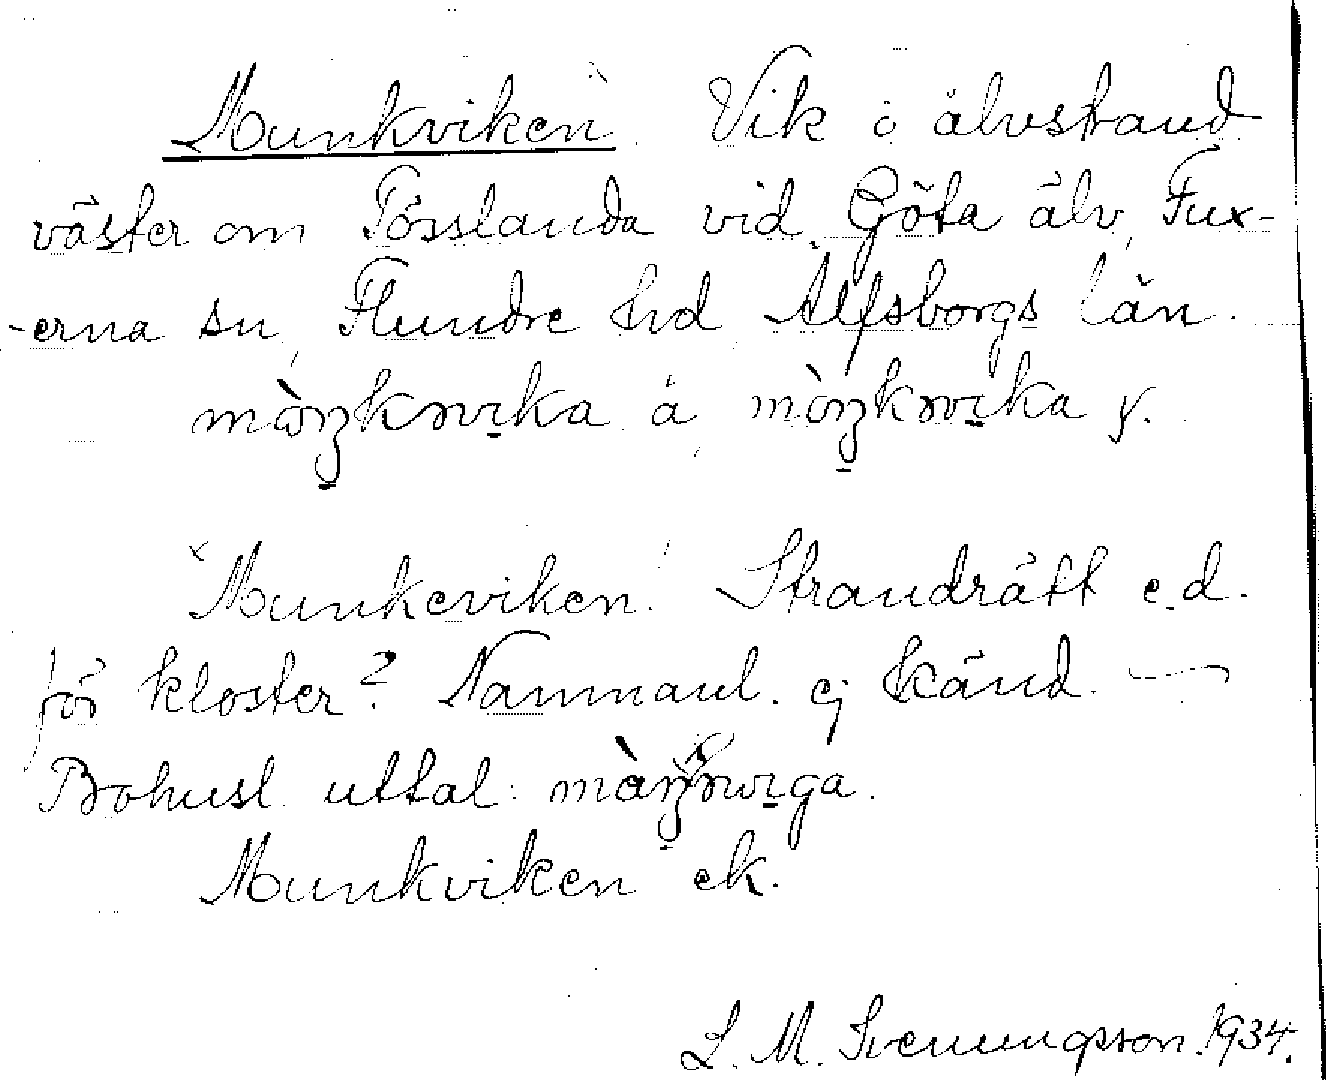 Munkviken Vik ö älvstrand
väster om Tösslanda vid Göta älv, Fux-
-erna sn, Flundre hd Älfsborgs län.
mòŋkɷvika å, mòŋkɷvika y.
"Munkeviken". Strandrätt e.d.
för kloster? Namnanl. ej känd. —
Bohusl. uttal:
Munkviken ek.
L. M. Svenungsson. 1934.